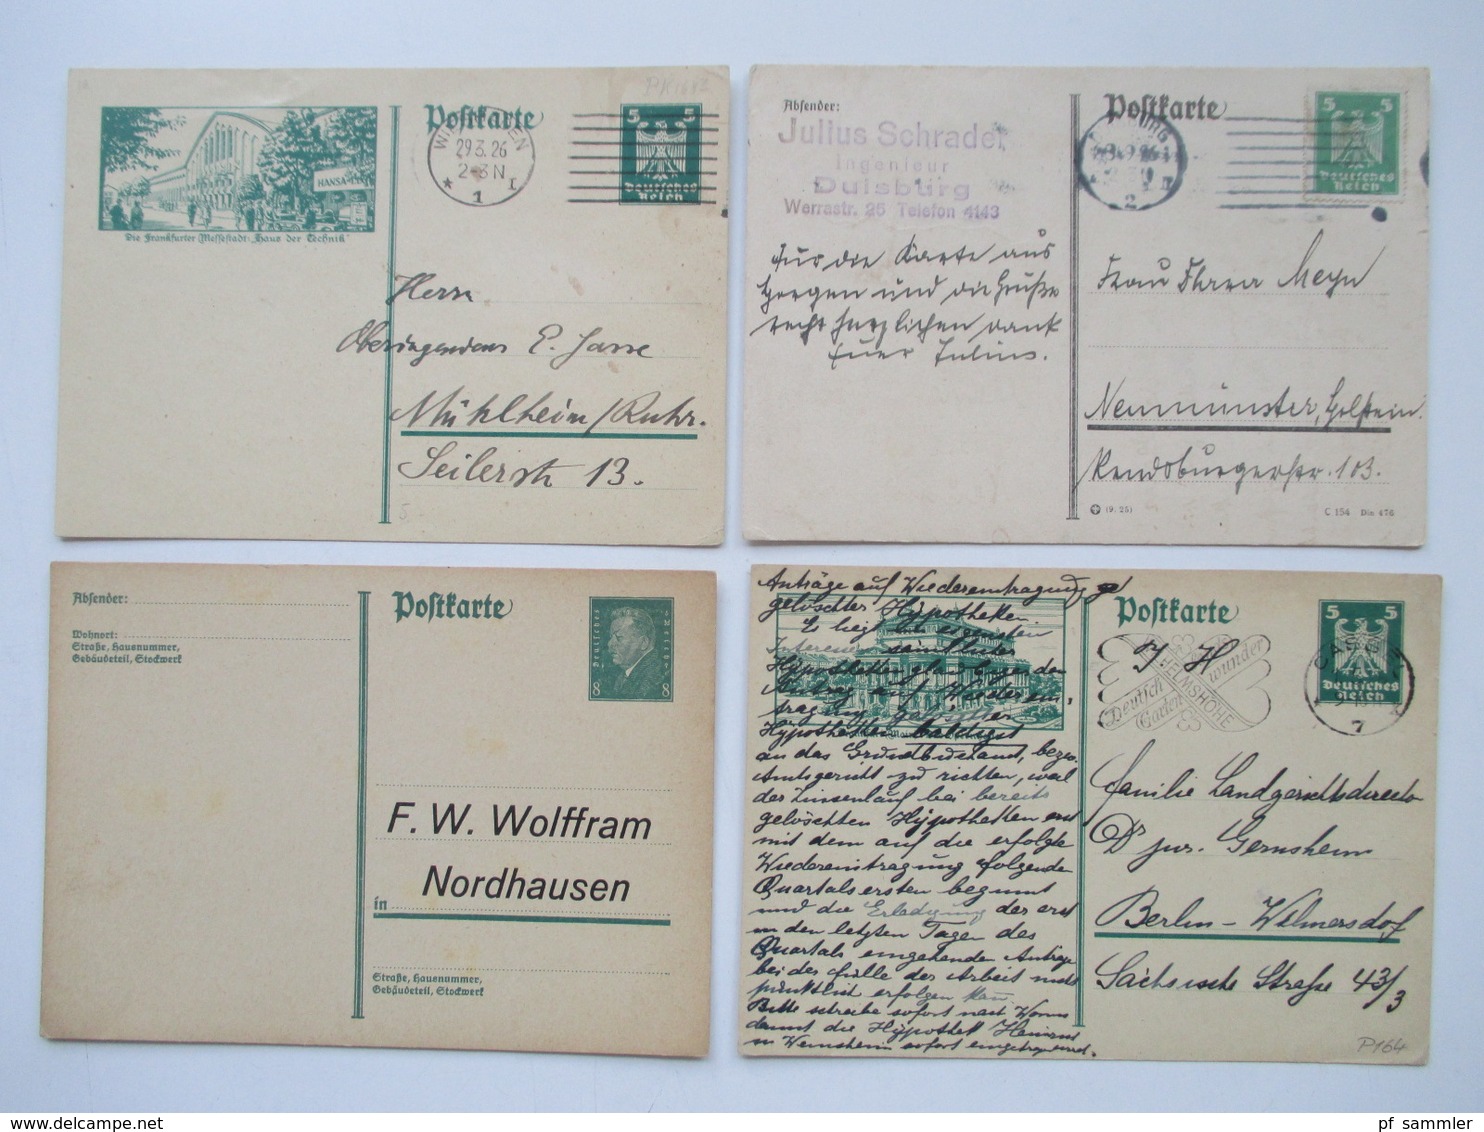 Postkarte
5 5
Deutsches
Reich
29.3.26
2-3N
1
HANSA
Die Frankfurter Messestadt: "Haus der Technik"
Herrn
E. Jasse
Mühlheim/Ruhr.
Seilerstr. 13.
Absender:
Postkarte
5 5
Deutsches
Reich
2
Julius Schrader
Ingenieur
Duisburg
Werrastr. 25 Telefon 4143
Für die Karte aus
und die Grüße
recht herzlichen Dank
Euer Julius.
Frau Meyn
Neumünster, Holstein.
Rendsburgerstr. 103.
(9. 25)
C 154 Din 476
Absender:
Wohnort:
Straße, Hausnummer,
Gebäudeteil, Stockwerk
Postkarte
Deutsches Reich
8 8
F. W. Wolffram
Nordhausen
in
Straße, Hausnummer,
Gebäudeteil, Stockwerk
Postkarte
5 5
Deutsches
Reich
WILHELMSHÖHE
Deutsch
Garten
wunder
7
Anträge auf Wiedereintragung
gelöschter Hypotheken.
Es liegt im eigensten
Interesse sämtlicher
Hypothekengläubiger den
Antrag auf Wiederein-
tragung gelöschter
Hypotheken baldigst
an das Grundbuchamt, bezw.
Amtsgericht zu richten, weil
der Zinsenlauf bei bereits
gelöschten Hypotheken erst
mit dem auf die erfolgte
Wiedereintragung folgenden
Quartalsersten beginnt
und die Erledigung der erst
in den letzten Tagen des
Quartals eingehenden Anträge
bei der Fülle der Arbeit nicht
pünktlich erfolgen kann.
Bitte schreibe sofort nach Worms
damit die Hypothek
in sofort eingetragen wird.
Familie Landgerichtsdirector
Dr jur. Gernsheim
Berlin-Wilmersdorf
Sächsische Straße 43/3
P164
pf_sammler